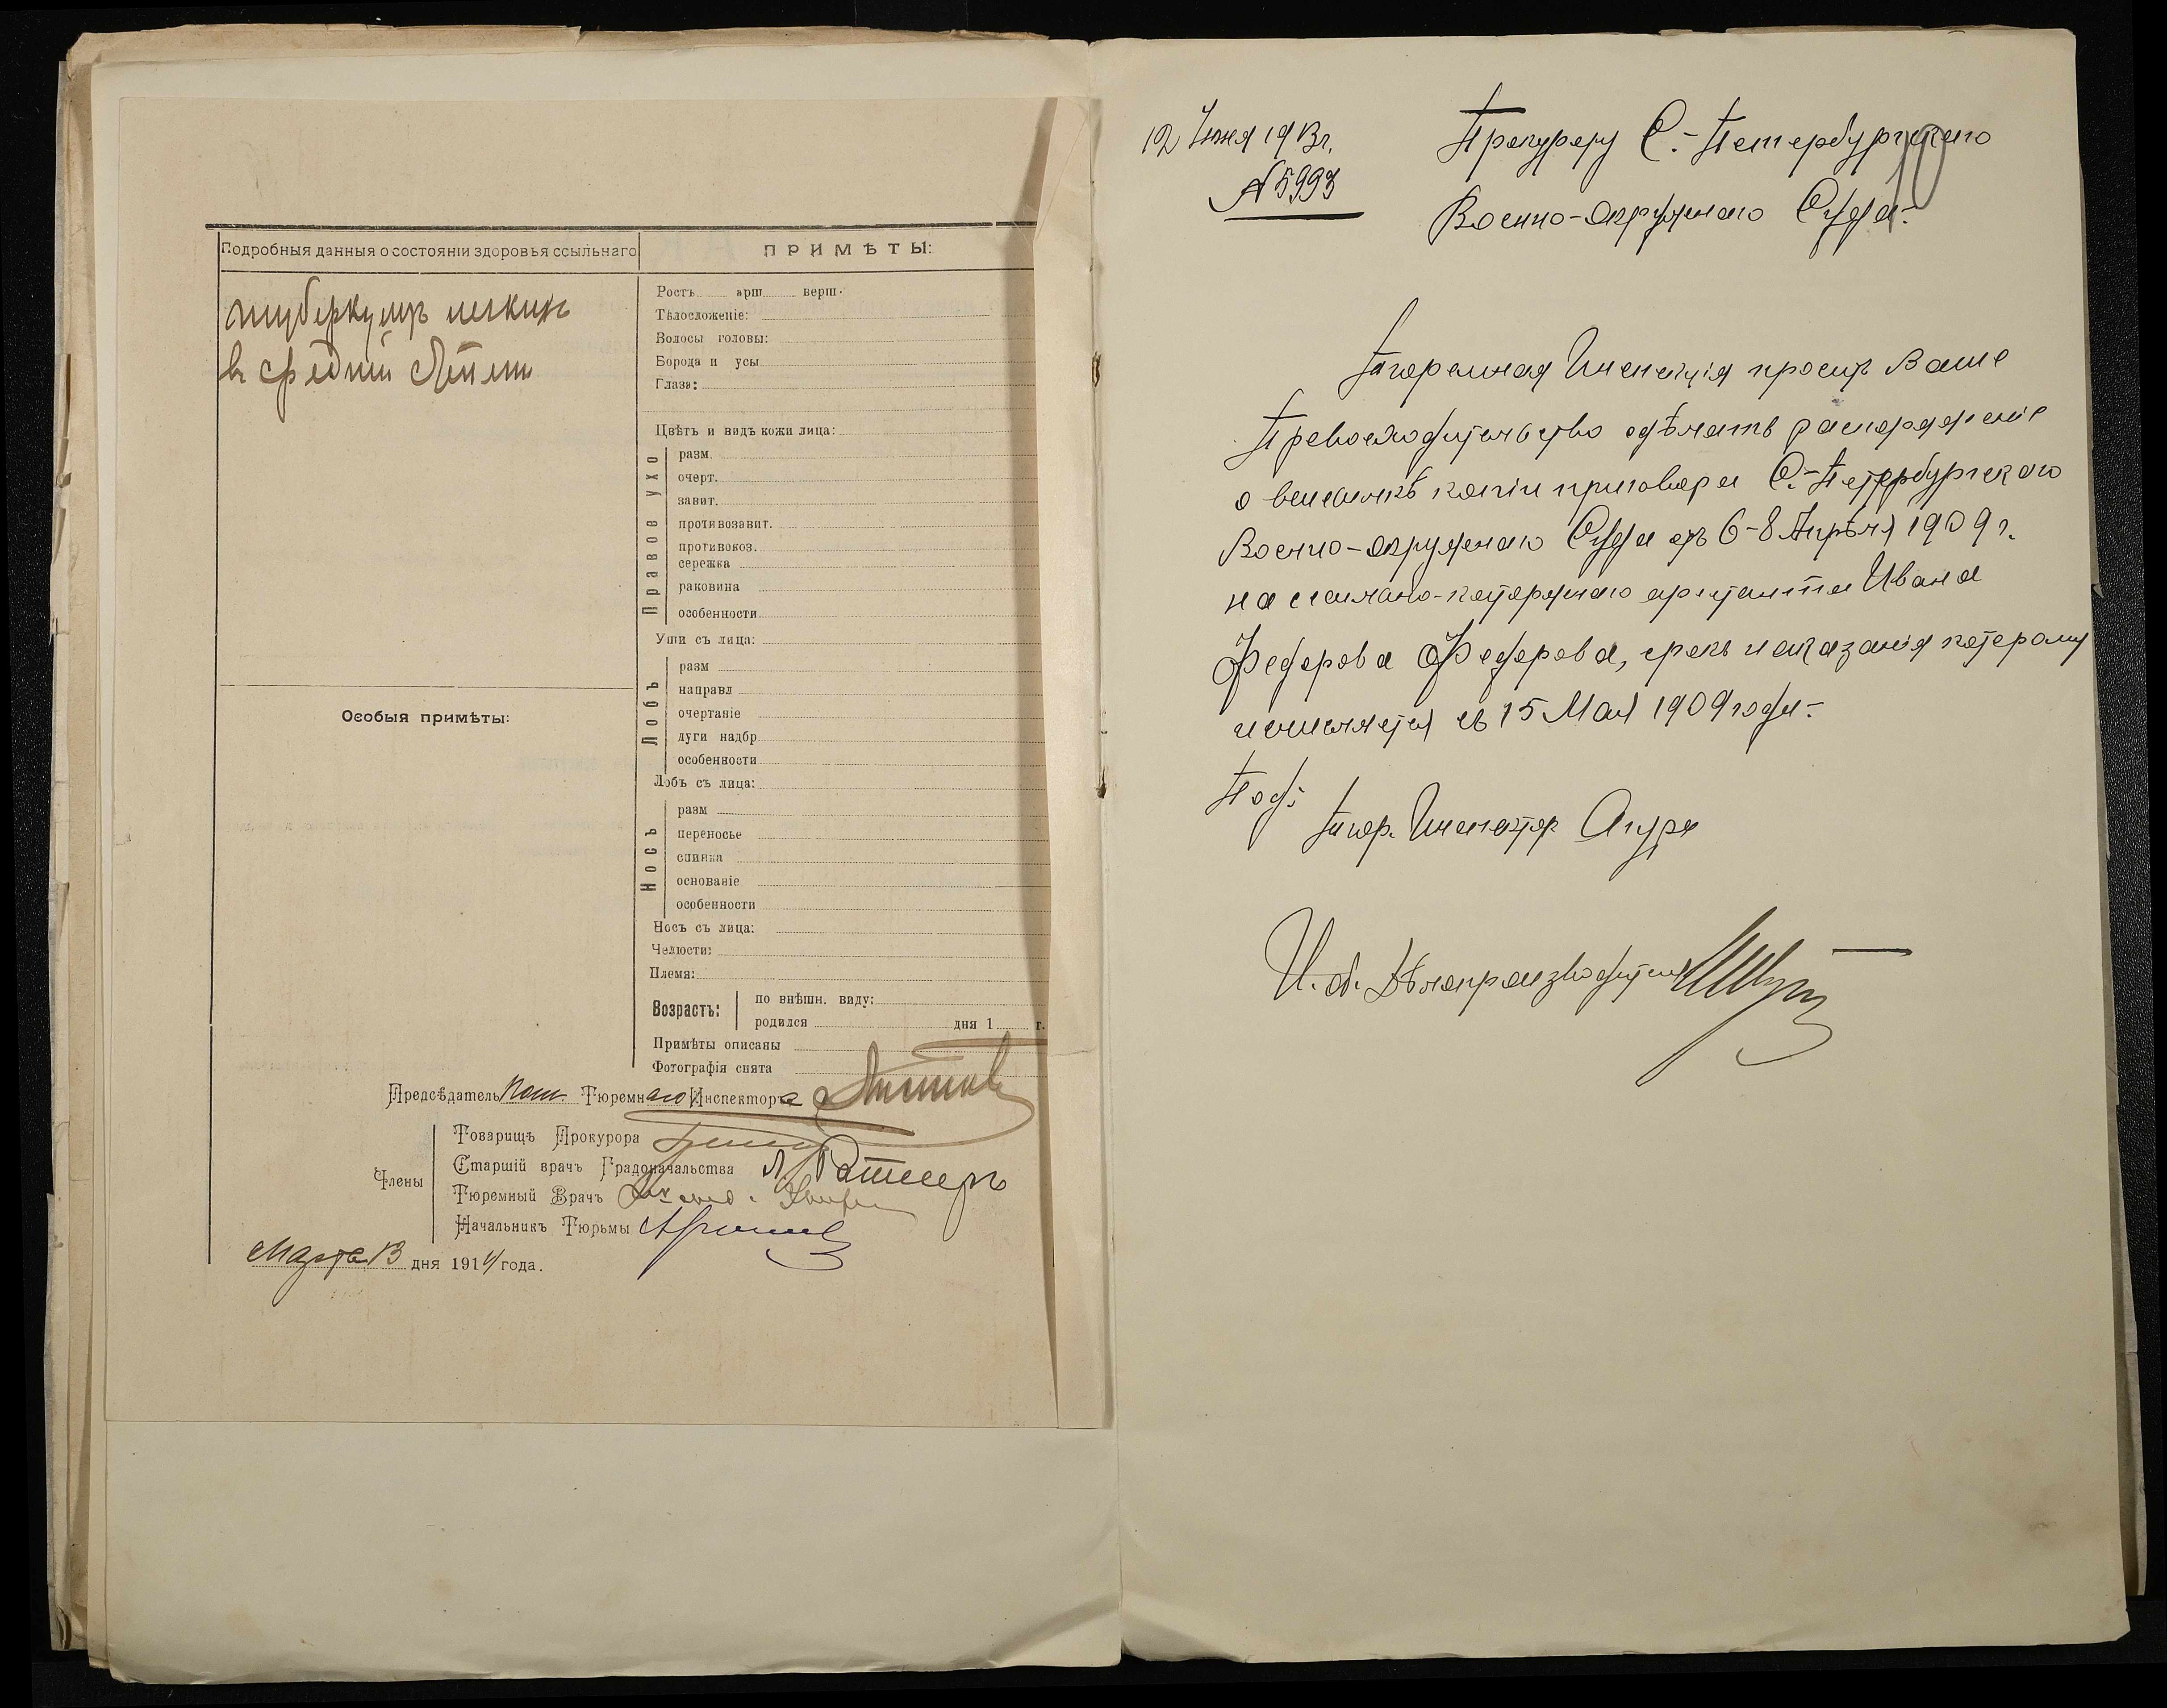 Подробныя данныя о состояніи здоровья ссыльнаго
туберкулезъ легкихъ
въ средней степени
Особыя примѣты:
ПРИМѢТЫ:
Ростъ арш. верш.
Тѣлосложеніе:
Волосы головы:
Борода и усы
Глаза:
Цвѣтъ и видъ кожи лица:
Правое ухо
разм.
очерт.
завит.
противозавит.
противокоз.
сережка
раковина
особенности
Уши съ лица:
Лобъ
разм
направл
очертаніе
дуги надбр
особенности
Лобъ съ лица:
Носъ
разм
переносье
спинка
основаніе
особенности
Носъ съ лица:
Челюсти:
Племя:
Возрастъ:
по внѣшн. виду:
родился дня 1 г.
Примѣты описаны
Фотографія снята
Предсѣдатель Пом. Тюремнаго Инспектора
Члены
Товарищъ Прокурора
Старшій врачъ Градоначальства
Тюремный Врачъ
Начальникъ Тюрьмы
Марта 13 дня 1914 года.
12 Іюня 1913 г.
№ 5993
Прокурору С.-Петербургскаго
Военно-Окружнаго Суда.
10
Тюремная Инспекція проситъ Ваше
Превосходительство сдѣлать распоряженіе
о высылкѣ копіи приговора С.-Петербургскаго
Военно-Окружнаго Суда отъ 6-8 Апрѣля 1909 г.
на ссыльно-каторжнаго арестанта Ивана
Федорова Федорова, срокъ наказанія которому
исчисляется съ 15 Мая 1909 года.
Под:
Тюр. Инспекторъ
И. об. Дѣлопроизводителя